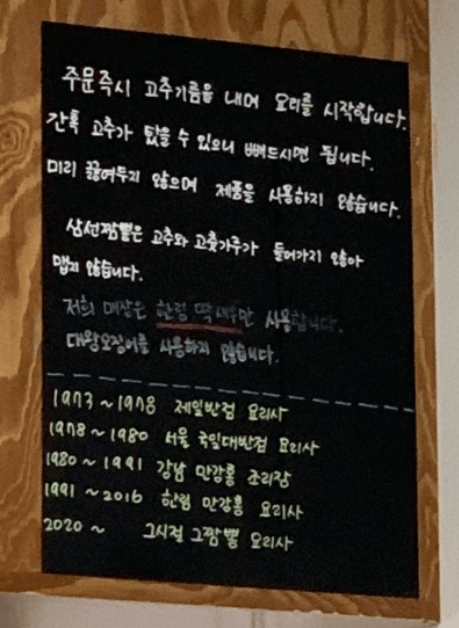 주문즉시 고추기름을 내어 요리를 시작합니다.
간혹 고추가 탔을 수 있으니 빼드시면 됩니다.
미리 끓여두지 않으며 제품을 사용하지 않습니다.
삼선짬뽕은 고추와 고춧가루가 들어가지 않아
맵지 않습니다.
저희 매장은 한림 딱새우만 사용합니다.
대왕오징어를 사용하지 않습니다.
1973 ~ 1978 제일반점 요리사
1978 ~ 1980 서울 국일대반점 요리사
1980 ~ 1991 강남 만강홍 조리장
1991 ~ 2016 한림 만강홍 요리사
2020 ~ 그시절 그짬뽕 요리사